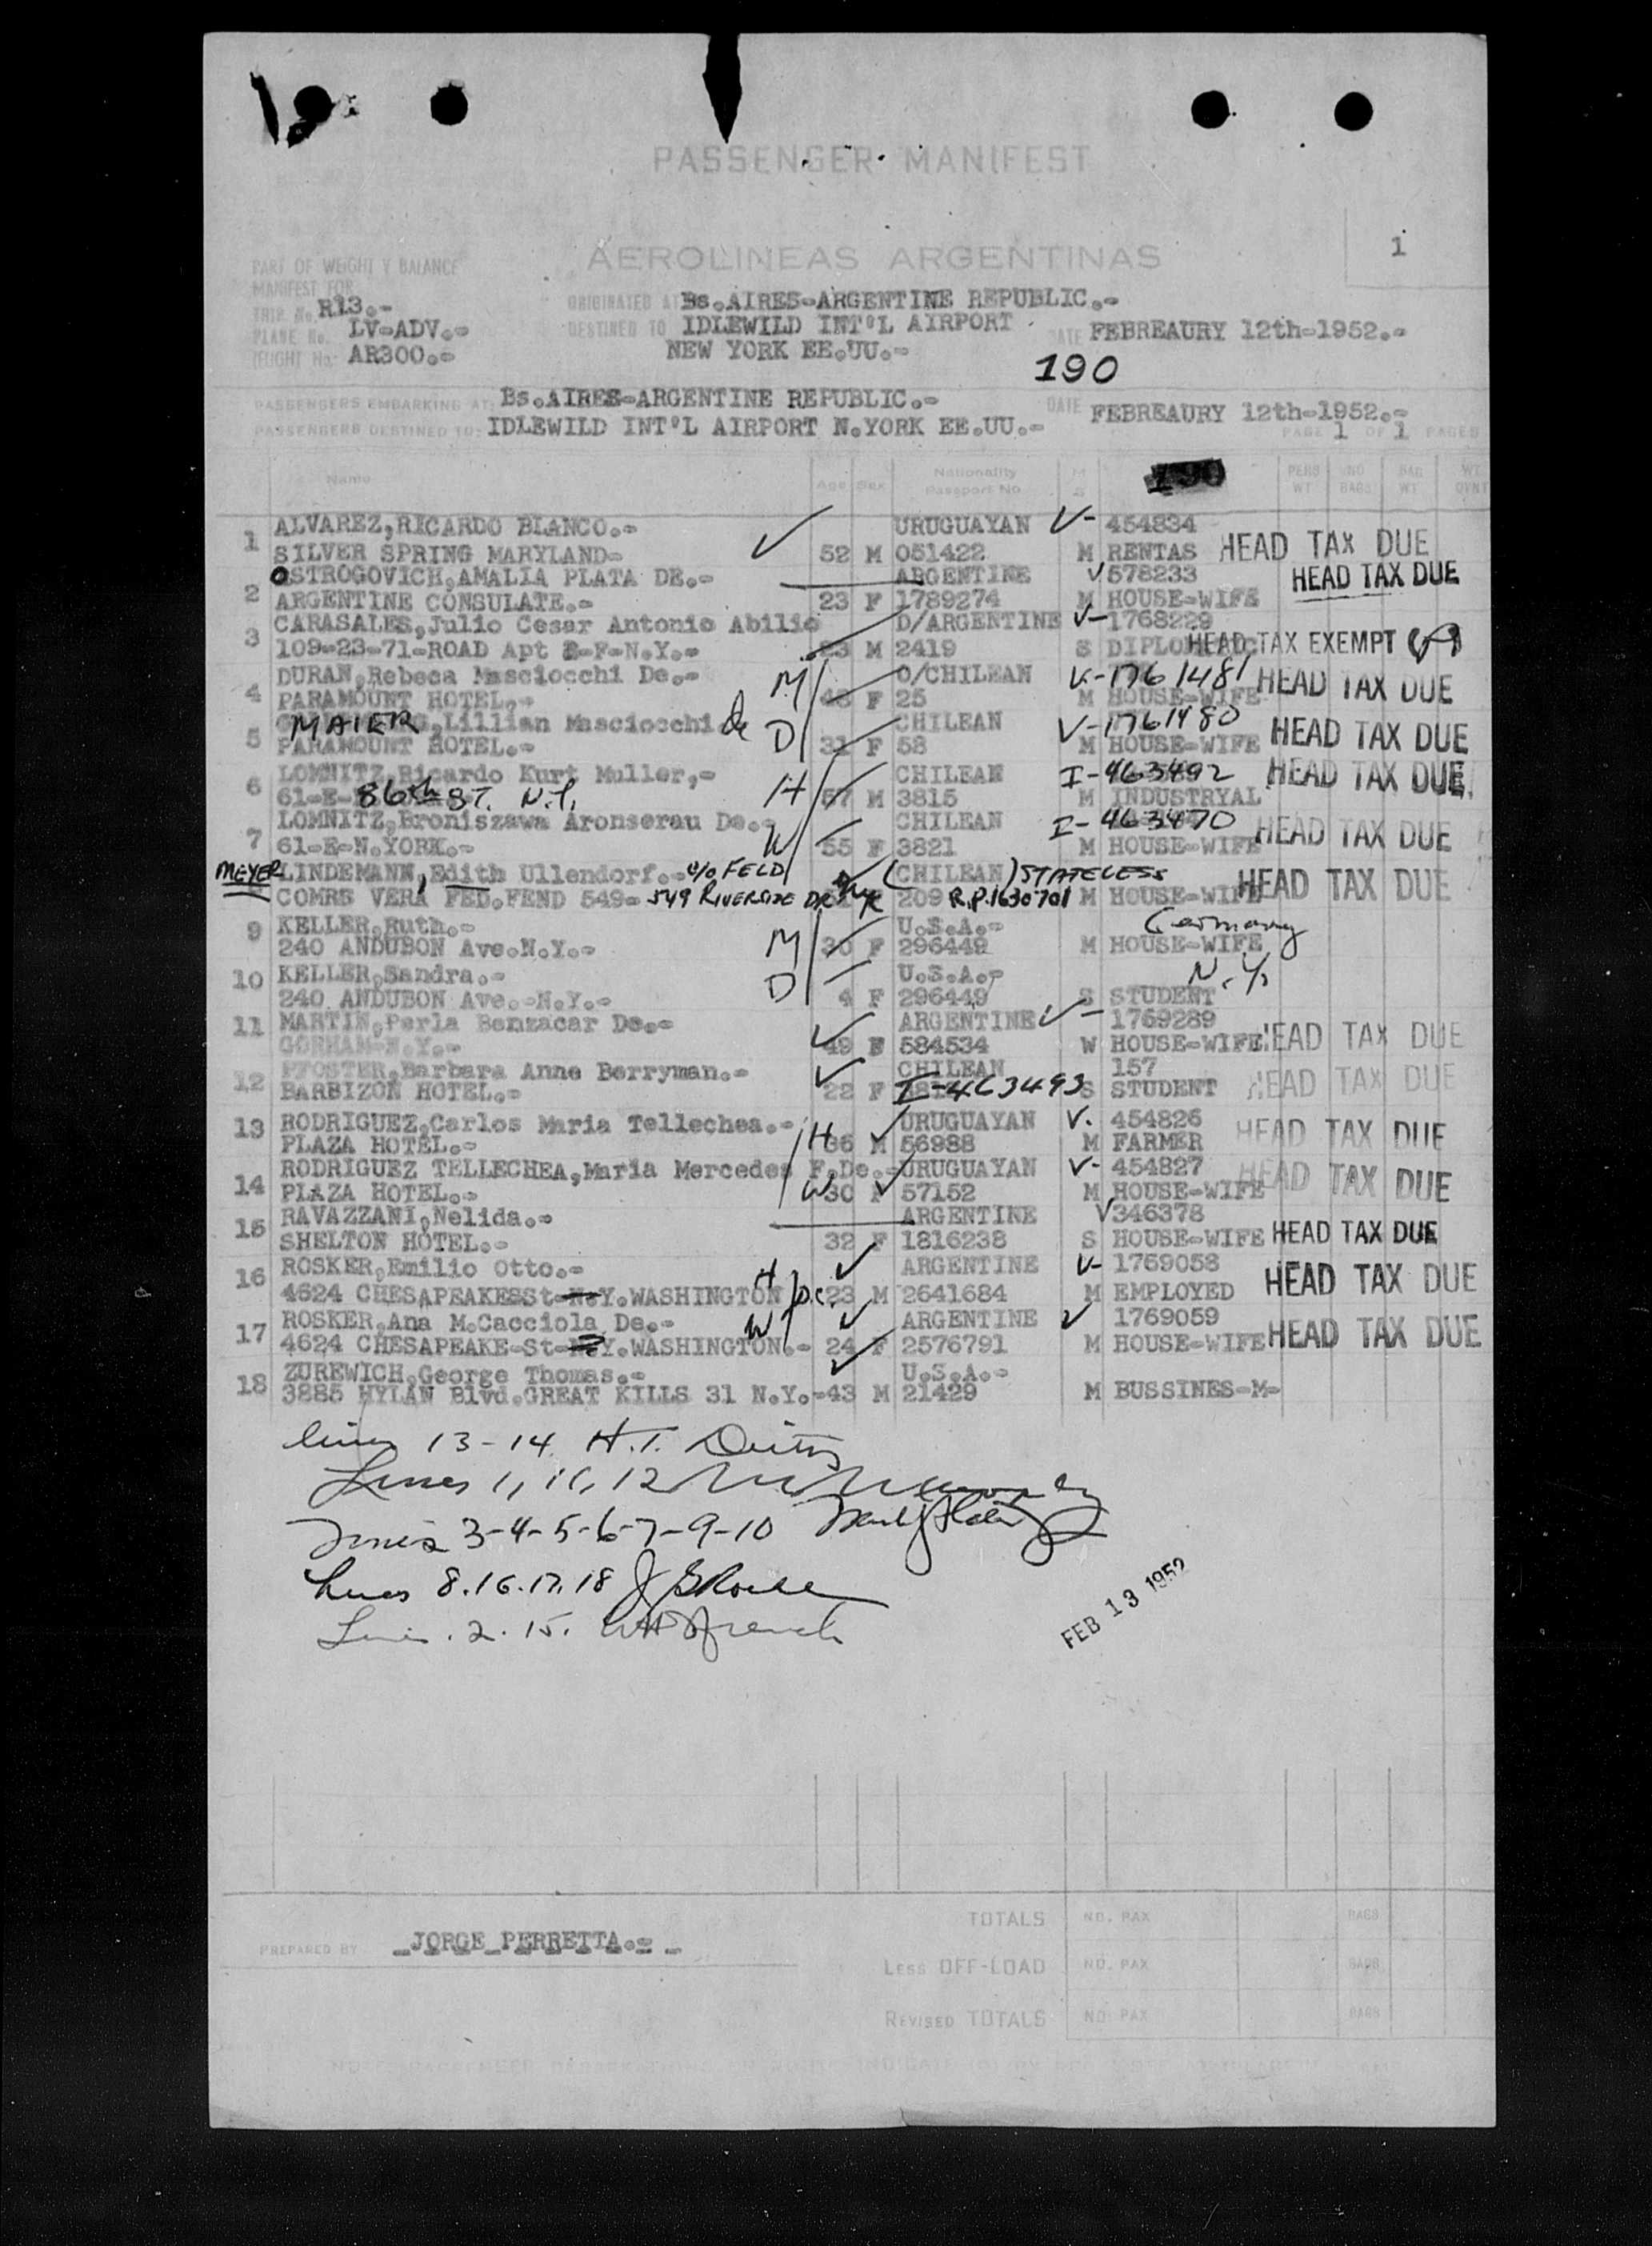 PASSENGER MANIFEST
1
AEROLINEAS ARGENTINAS
PART OF WEIGHT Y BALANCE
MANIFEST FOR
TRIP No. R13.-
ORIGINATED AT Bs.AIRES-ARGENTINE REPUBLIC.-
PLANE No. LV-ADV.-
DESTINED TO IDLEWILD INT'L AIRPORT
DATE FEBREAURY 12th-1952.-
FLIGHT No. AR300.-
NEW YORK EE.UU.-
190
PASSENGERS EMBARKING AT: Bs.AIRES-ARGENTINE REPUBLIC.-
DATE FEBREAURY 12th-1952.-
PASSENGERS DESTINED TO: IDLEWILD INT'L AIRPORT N.YORK EE.UU.-
PAGE 1 OF 1 PAGES
Name Age Sex Nationality Passport No M S 190 PERS WT NO BAGS BAG WT WT OVNT
1 ALVAREZ,RICARDO BLANCO.- URUGUAYAN V- 454834
SILVER SPRING MARYLAND- 52 M 051422 M RENTAS HEAD TAX DUE
2 OSTROGOVICH,AMALIA PLATA DE.- ARGENTINE V 578233 HEAD TAX DUE
ARGENTINE CONSULATE.- 23 F 1789274 M HOUSE-WIFE
3 CARASALES,Julio Cesar Antonio Abilio D/ARGENTINE V-1768229
109-23-71-ROAD Apt -F-N.Y.- 23 M 2419 S HEAD TAX EXEMPT
4 DURAN,Rebeca Masciocchi De.- M O/CHILEAN V-1761481
PARAMOUNT HOTEL.- F 25 M HOUSE-WIFE HEAD TAX DUE
5 MAIER,Lillian Masciocchi de D CHILEAN V-1761480
PARAMOUNT HOTEL.- 31 F 58 M HOUSE-WIFE HEAD TAX DUE
6 LOMNITZ,Ricardo Kurt Muller,- H CHILEAN I-463492 HEAD TAX DUE
61-E-86th ST. N.Y. 57 M 3815 M INDUSTRYAL
7 LOMNITZ,Broniszawa Aronserau De.- W CHILEAN I-463470
61-E-N.YORK.- 55 F 3821 M HOUSE-WIFE HEAD TAX DUE
8 MEYER LINDEMANN, Edith Ullendorf.- c/o FELD (CHILEAN) STATELESS
COMRS VERA FED.FEND 549- 549 RIVERSIDE DR 209 R.P.1630701 M HOUSE-WIFE HEAD TAX DUE
9 KELLER,Ruth.- M U.S.A.- Germany
240 ANDUBON Ave.N.Y.- 30 F 296449 M HOUSE-WIFE
10 KELLER,Sandra.- D U.S.A.- N.Y.
240 ANDUBON Ave.-N.Y.- 4 F 296449 S STUDENT
11 MARTIN,Perla Benzacar De.- ARGENTINE V- 1769289
GORHAM-N.Y.- 49 F 584534 W HOUSE-WIFE HEAD TAX DUE
12 PFOSTER,Barbara Anne Berryman.- CHILEAN 157
BARBIZON HOTEL.- 22 F I-463493 S STUDENT HEAD TAX DUE
13 RODRIGUEZ,Carlos Maria Tellechea.- H URUGUAYAN V. 454826
PLAZA HOTEL.- 36 M 56988 M FARMER HEAD TAX DUE
14 RODRIGUEZ TELLECHEA,Maria Mercedes F.De.- URUGUAYAN V- 454827
PLAZA HOTEL.- W 30 F 57152 M HOUSE-WIFE HEAD TAX DUE
15 RAVAZZANI,Nelida.- ARGENTINE V 346378
SHELTON HOTEL.- 32 F 1816238 S HOUSE-WIFE HEAD TAX DUE
16 ROSKER,Emilio Otto.- H ARGENTINE V- 1769058
4624 CHESAPEAKESSt-N.Y.WASHINGTON D.C. 23 M 2641684 M EMPLOYED HEAD TAX DUE
17 ROSKER,Ana M.Cacciola De.- W ARGENTINE V 1769059
4624 CHESAPEAKE-St-N.Y.WASHINGTON.- 24 F 2576791 M HOUSE-WIFE HEAD TAX DUE
18 ZUREWICH,George Thomas.- U.S.A.-
3885 HYLAN Blvd.GREAT KILLS 31 N.Y.-43 M 21429 M BUSSINES-M-
lines 13-14 H.T.
Lines 1, 11, 12
Lines 3-4-5-6-7-9-10
Lines 8.16.17.18
Lines. 2. 15. French
FEB 13 1952
TOTALS NO. PAX BAGS
PREPARED BY JORGE PERRETTA.-
LESS OFF-LOAD NO. PAX BAGS
REVISED TOTALS NO. PAX BAGS